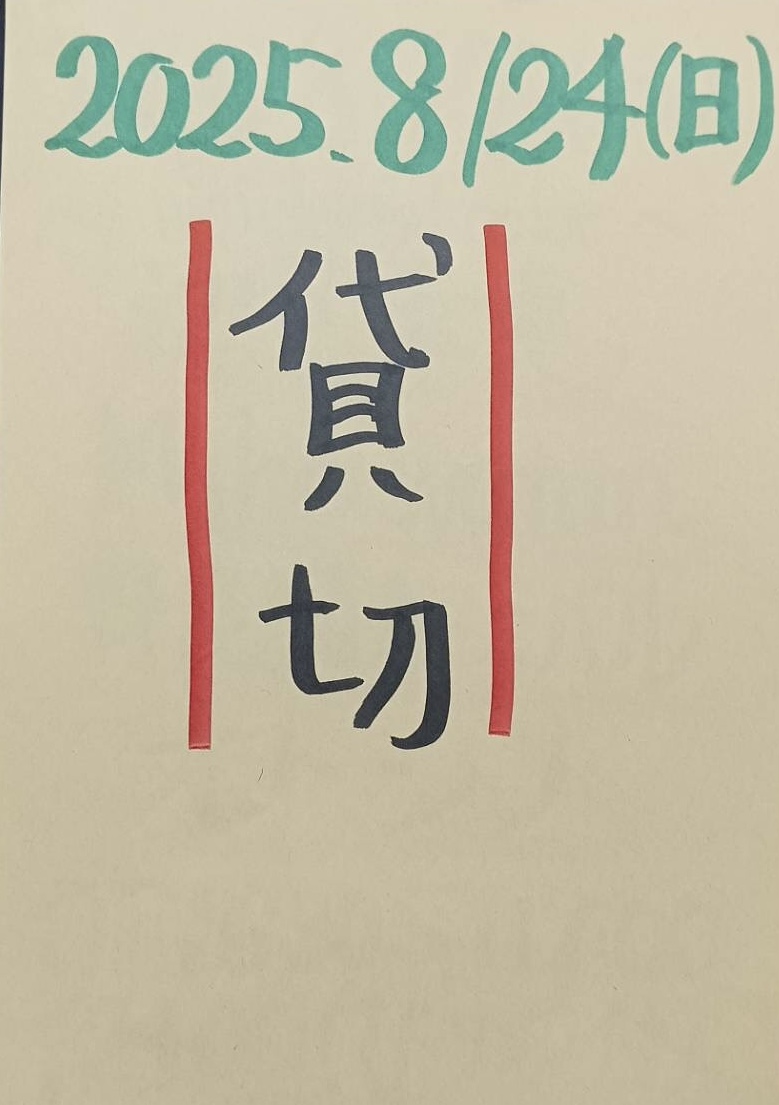 2025.8/24(日)
貸切